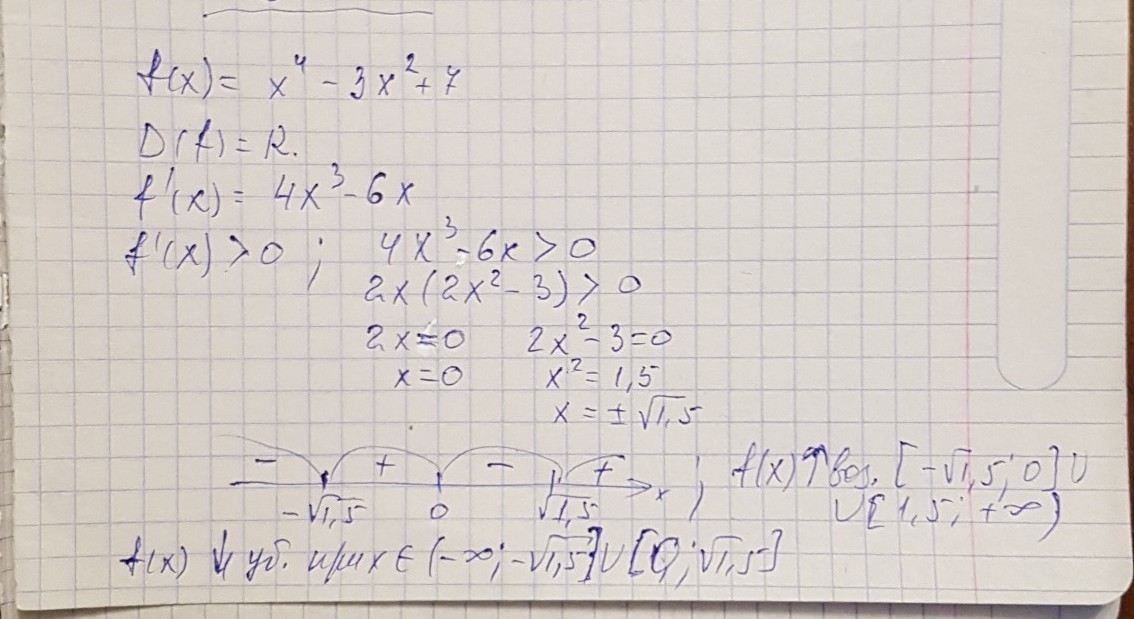 f(x) = x⁴ - 3x² + 7
D(f) = R.
f'(x) = 4x³ - 6x
f'(x) > 0 ; 4x³ - 6x > 0
2x(2x² - 3) > 0
2x = 0 2x² - 3 = 0
x = 0 x² = 1,5
x = ± √1,5
- + - + x ; f(x) ↑ воз. [-√1,5; 0] ∪
-√1,5 0 √1,5 ∪ [1,5; +∞)
f(x) ↓ уб. при x ∈ (-∞; -√1,5] ∪ [0; √1,5]